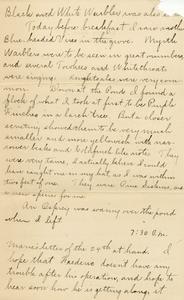 Black and White Warbler was also seen.
Today before breakfast I saw another
Blue-headed Vireo in the grove. Myrtle
Warblers were to be seen in great numbers
and several Towhees and Whitethroats
were singing. Kinglets also were very com-
mon. Down at the Ponds I found a
flock of what I took at first to be Purple
Finches in a larch tree. But a closer
scrutiny showed them to be very much
smaller and more yellowish with nar-
rower beaks and Goldfinch like notes. They
were very tame, I actually believe I could
have caught me in my hat as I was within
two feet of one. They were Pine Siskins,
a new species for me.
An Osprey was soaring over the pond
when I left.
7:30 P.M.
Mamie's letter of the 29th at hand. I
hope that Frederic doesn't have any
trouble after his operation, and hope to
hear soon how he is getting along, it